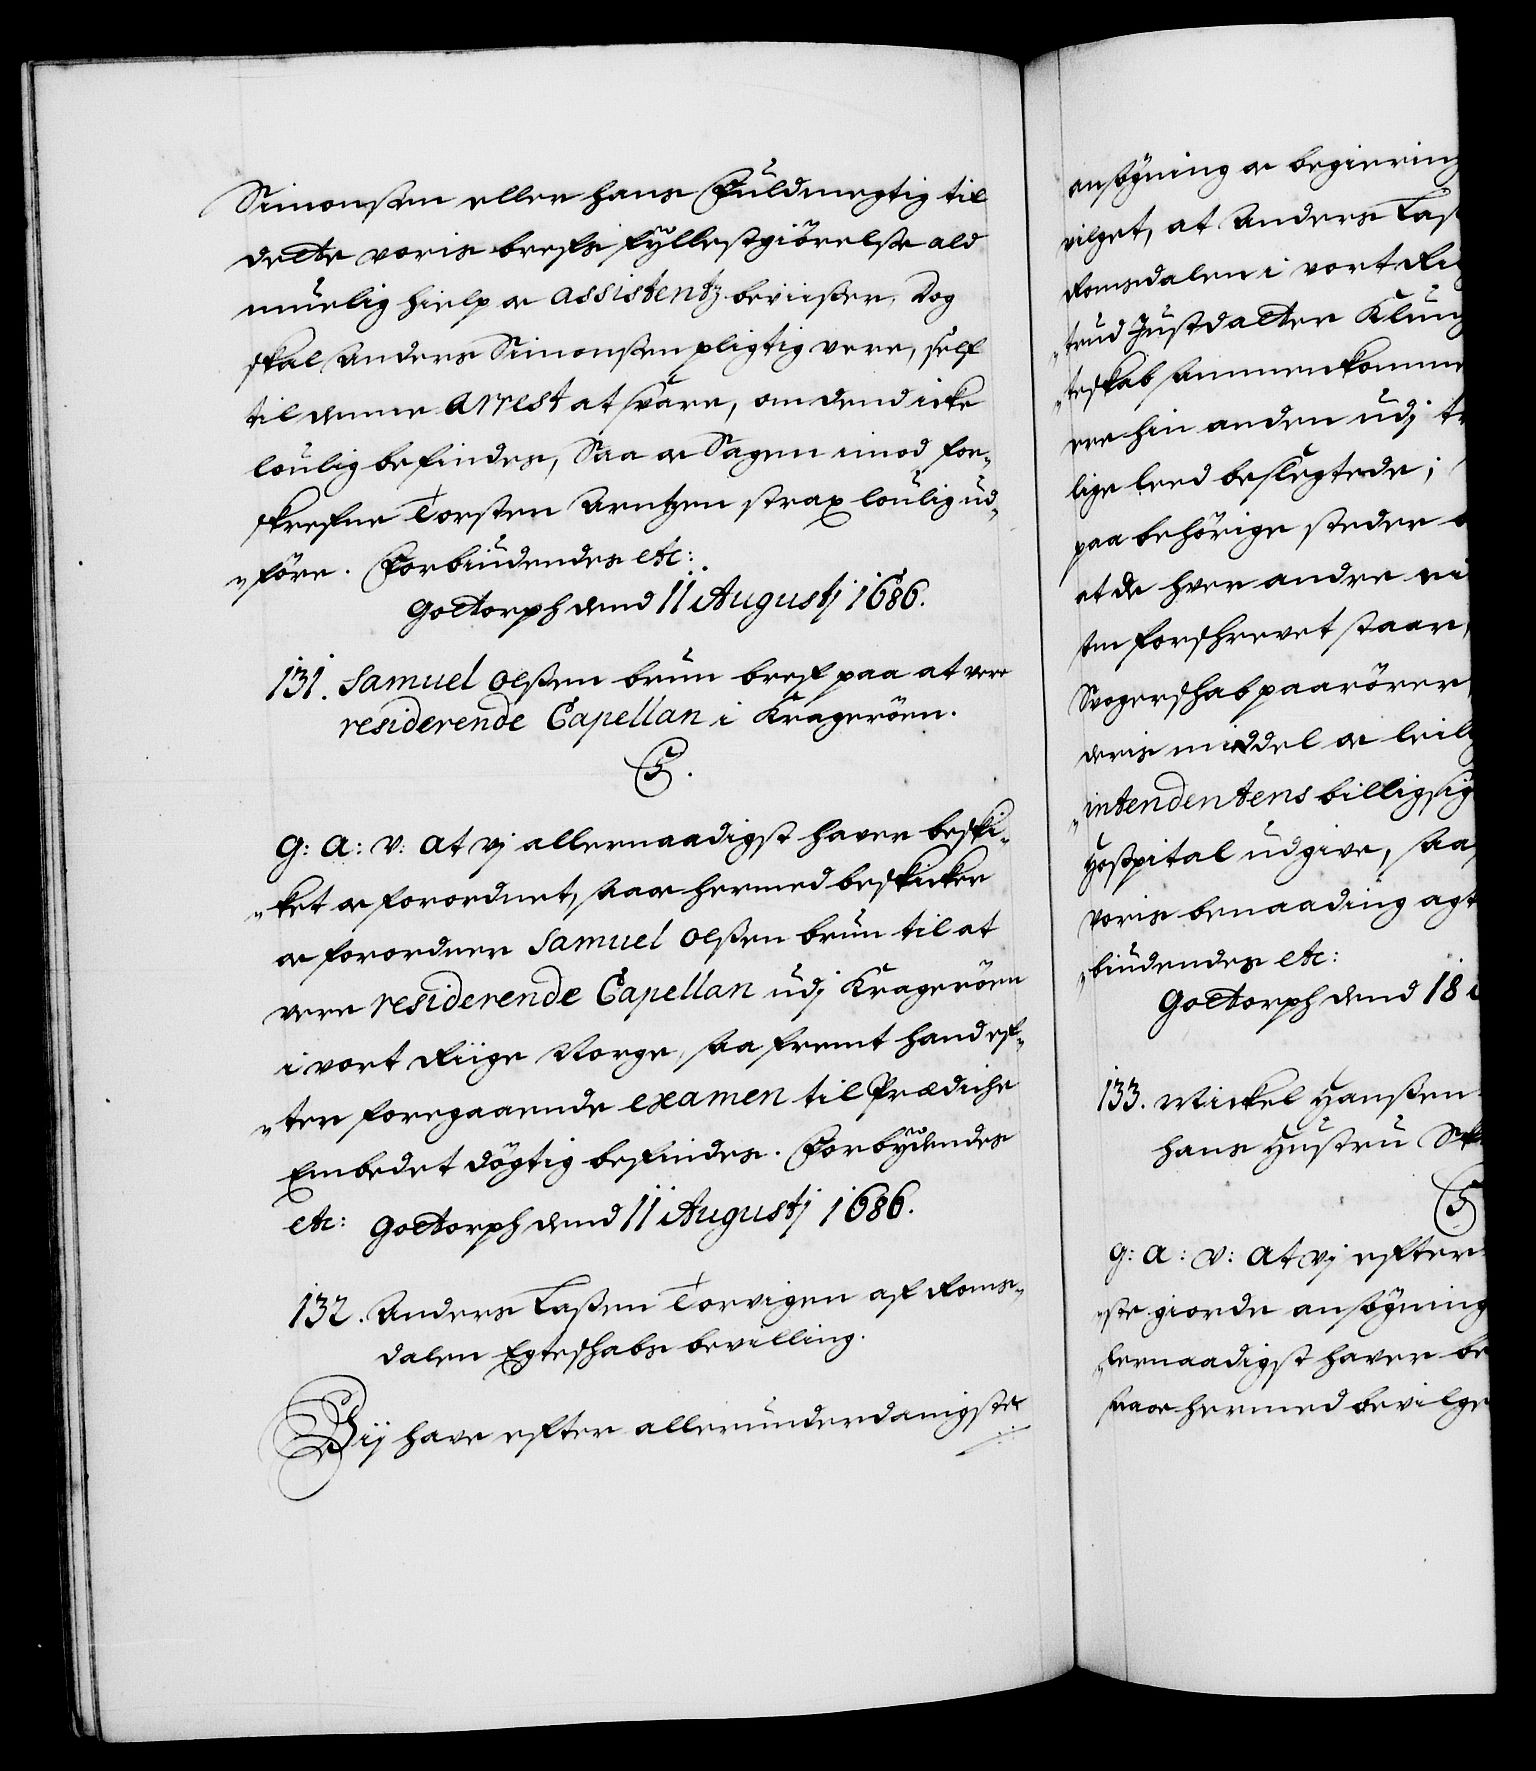 Simonssen eller hans Fuldmegtig til
dette voris brefs fyllestgiörelse ald
muelig hielp oc assistentz beviisser, Dog
skal Anders Simonssen pligtig vere, self
til denne Arrest at svare, om dend icke
loulig befindes, Saa oc Sagen imod for„
skrefne Torsten Arntzen strax loulig ud„
„före. Forbiudendes etc:
Gottorph dend 11 Augustj 1686.
131. Samuel Olssen brun bref paa at vere
residerende Capellan i Kragerøen.
C5.
G: A: V: At vj allernaadigst haver beski„
„ket oc forordnet, saa oc hermed beskicker
oc forordner Samuel Olssen brun til at
vere residerende Capellan udj Kragerøen
i vort Riige Norge, saafremt hand ef„
„ter foregaaende examen til Prædicke
Embedet dögtig befindes. Forbydendes
etc: Gottorph dend 11 Augustj 1686.
132. Anders Lassen Torvigen af Roms„
dalen Egteskabs bevilling.
Vij have efter allerunderdanigste
ansøgning oc begiering
vilget, at Anders Las
Romsdalen i vort Rii
„trud Justdatter Klung
„teskab sammenkomme
ere hin anden udj tr
lige leed beslegtede;
paa behörige steder
at de hver andre ei
som forschrevet staar,
Svogerschab paarörer,
deris middel oc leil
„intendentens billigsig
Hospital udgive, saa
voris benaading agt
„biudendes etc:
Gottorph dend 18
133. Mickel Hanssen
hans Hustru
C5
G: A: V: At vj efter
„ste giorde ansøgning
„lernaadigst haver be
saa oc hermed bevilge